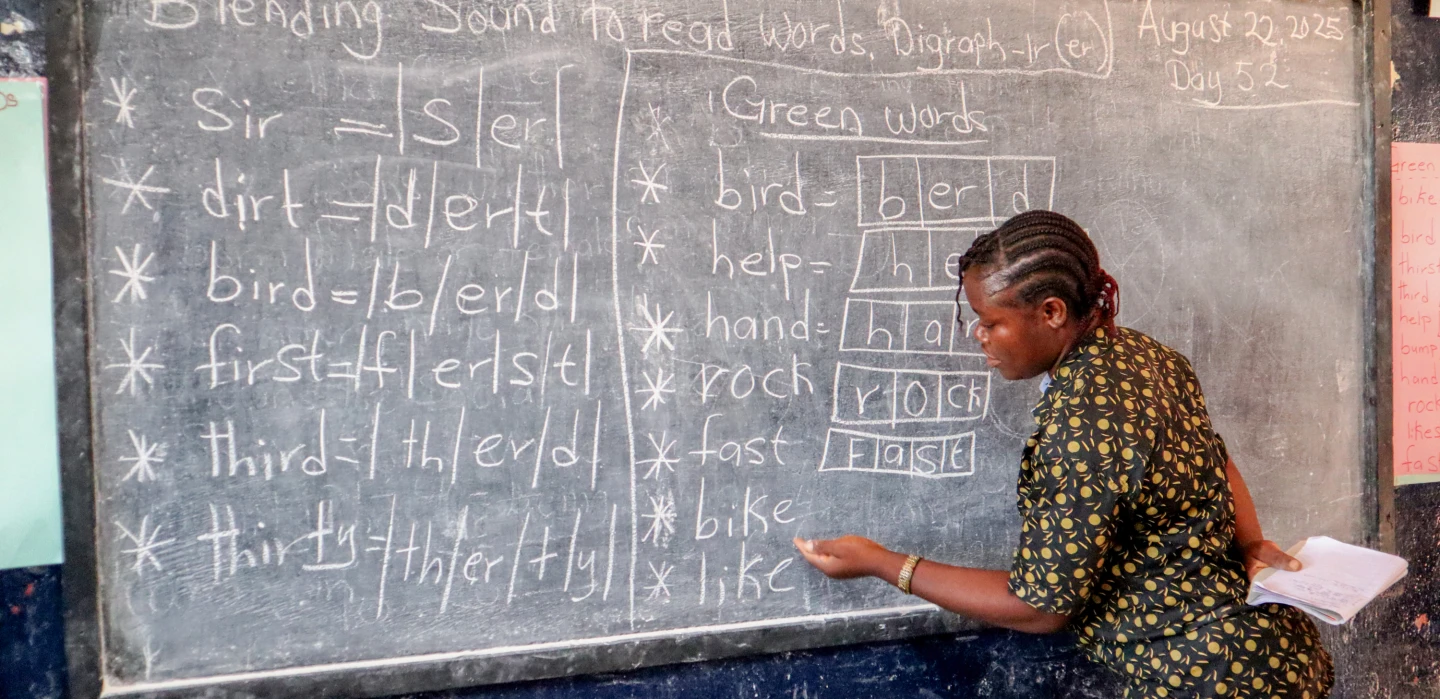 Blending Sound to read words, Digraph-ir (er)
August 22, 2025
Day 52
* Sir = |S|er|
* dirt = |d|er|t|
* bird = |b|er|d|
* first = |f|er|s|t|
* third = |th|er|d|
* thirty = |th|er|t|y|
* Green words
* bird = |b|er|d|
* help = |h|e
* hand = |h|a|n
* rock |r|o|ck|
* fast |F|a|s|t|
* bike
* like
green
bike
bird
thirst
third
help
bump
hand
rock
likes
fast